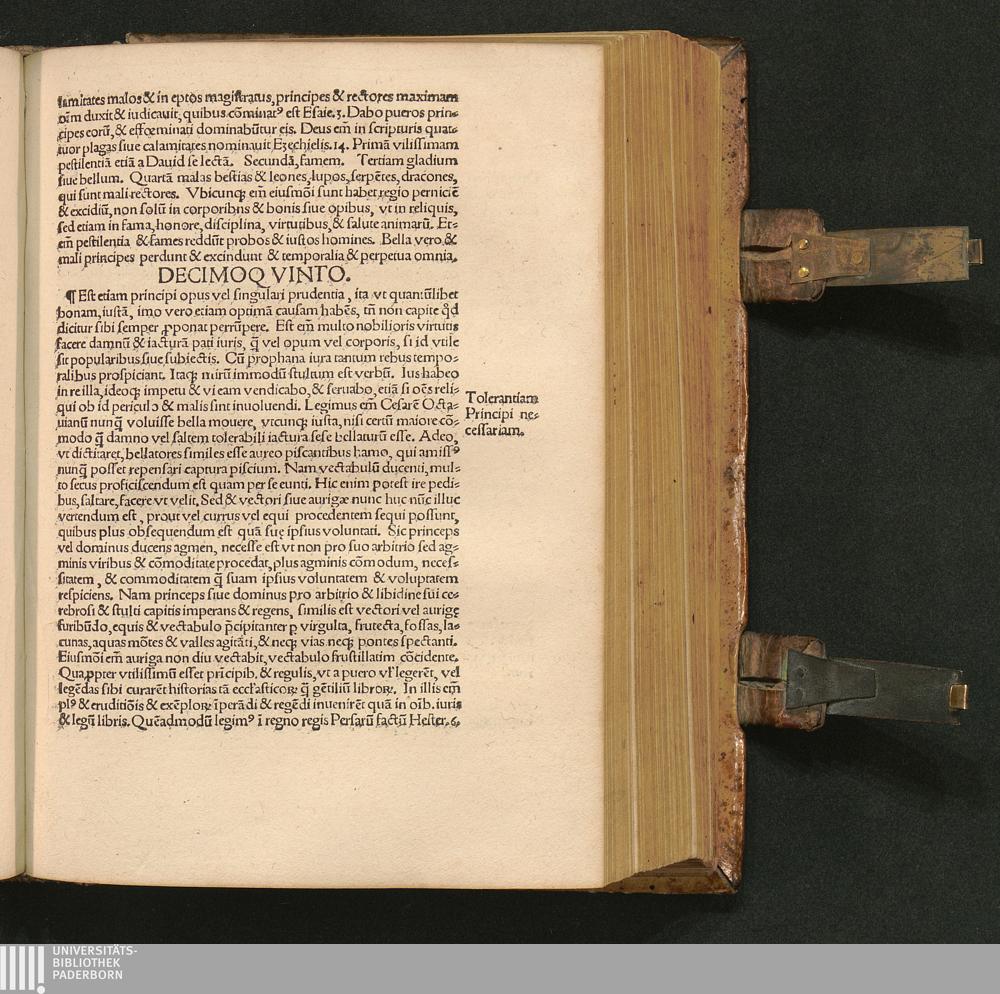 lamitates malos & in eptos magistratus, principes & rectores maximam
oēm duxit & iudicauit, quibus cōminatꝰ est Esaie.3. Dabo pueros prin⸗
cipes eorū, & effœminati dominabūtur eis. Deus em̄ in scripturis quat⸗
tuor plagas siue calamitates nominauit Ezechielis.14. Primā vilissimam
pestilentiā etiā a Dauid se lectā. Secundā, famem. Tertiam gladium
siue bellum. Quartā malas bestias & leones, lupos, serpētes, dracones,
qui sunt mali rectores. Vbicunqꝫ em̄ eiusmōi sunt habet regio perniciē
& excidiū, non solū in corporibns & bonis siue opibus, vt in reliquis,
sed etiam in fama, honore, disciplina, virtutibus, & salute animarū. Et⸗
em̄ pestilentia & fames reddūt probos & iustos homines. Bella vero &
mali principes perdunt & excindunt & temporalia & perpetua omnia.
DECIMOQVINTO.
¶ Est etiam principi opus vel singulari prudentia, ita vt quantūlibet
bonam, iustā, imo vero etiam optimā causam habēs, tn̄ non capite qd̓
dicitur sibi semper ꝓponat perrūpere. Est em̄ multo nobilioris virtutis
facere damnū & iacturā pati iuris, q̄ vel opum vel corporis, si id vtile
sit popularibus siue subiectis. Cū prophana iura tantum rebus tempo⸗
ralibus prospiciant. Itaqꝫ mirū immodū stultum est verbū. Ius habeo
in re illa, ideoqꝫ impetu & vi eam vendicabo, & seruabo, etiā si oēs reli⸗
qui ob id periculo & malis sint inuoluendi. Legimus em̄ Cesarē Octa⸗
uianū nunq̄ voluisse bella mouere, vtcunqꝫ iusta, nisi certū maiore cō⸗
modo q̄ damno vel saltem tolerabili iactura sese bellaturū esse. Adeo,
vt dictitaret, bellatores similes esse aureo piscantibus hamo, qui amissꝰ
nunq̄ posset repensari captura piscium. Nam vectabulū ducenti, mul⸗
to secus proficiscendum est quam per se eunti. Hic enim potest ire pedi⸗
bus, saltare, facere vt velit. Sed & vectori siue aurigæ nunc huc nūc illuc
vertendum est, prout vel currus vel equi procedentem sequi possunt,
quibus plus obsequendum est quā suę ipsius voluntati. Sic princeps
vel dominus ducens agmen, necesse est vt non pro suo arbitrio sed ag⸗
minis viribus & cōmoditate procedat, plus agminis cōmodum, neces⸗
sitatem, & commoditatem q̄ suam ipsius voluntatem & voluptatem
respiciens. Nam princeps siue dominus pro arbitrio & libidine sui ce⸗
rebrosi & stulti capitis imperans & regens, similis est vectori vel aurigę
furibūdo, equis & vectabulo p̄cipitanter ꝑ virgulta, frutecta, fossas, la⸗
cunas, aquas mōtes & valles agitāti, & neqꝫ vias neqꝫ pontes spectanti.
Eiusmōi em̄ auriga non diu vectabit, vectabulo frustillatim cōcidente.
Quaꝓpter vtilissimū esset prīcipib. & regulis, vt a puero vl̓ legerēt, vel
legēdas sibi curarēt historias tā eccl̓asticoꝝ q̄ gētiliū libroꝝ. In illis em̄
plꝰ & eruditiōis & exēploꝝ īperādi & regēdi inuenirēt quā in oīb. iuris
& legū libris. Quēadmodū legimꝰ ī regno regis Persarū factū Hester.6.
Tolerantiam
Principi ne⸗
cessariam.
UNIVERSITÄTS-
BIBLIOTHEK
PADERBORN